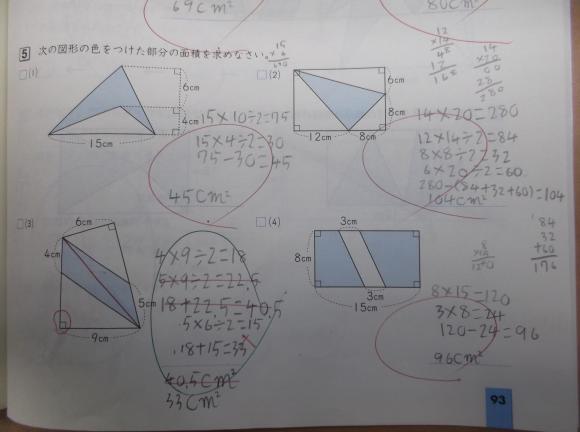 69cm²
80cm²
5 次の図形の色をつけた部分の面積を求めなさい。
(1)
6cm
4cm
15cm
15×10÷2=75
15×4÷2=30
75-30=45
45cm²
(2)
6cm
8cm
12cm
8cm
14×20=280
12×14÷2=84
8×8÷2=32
6×20÷2=60
280-(84+32+60)=104
104cm²
(3)
6cm
4cm
5cm
9cm
4×9÷2=18
5×9÷2=22.5
18+22.5=40.5
5×6÷2=15
18+15=33
40.5cm²
33cm²
(4)
3cm
8cm
3cm
15cm
8×15=120
3×8=24
120-24=96
96cm²
84
32
+60
176
93